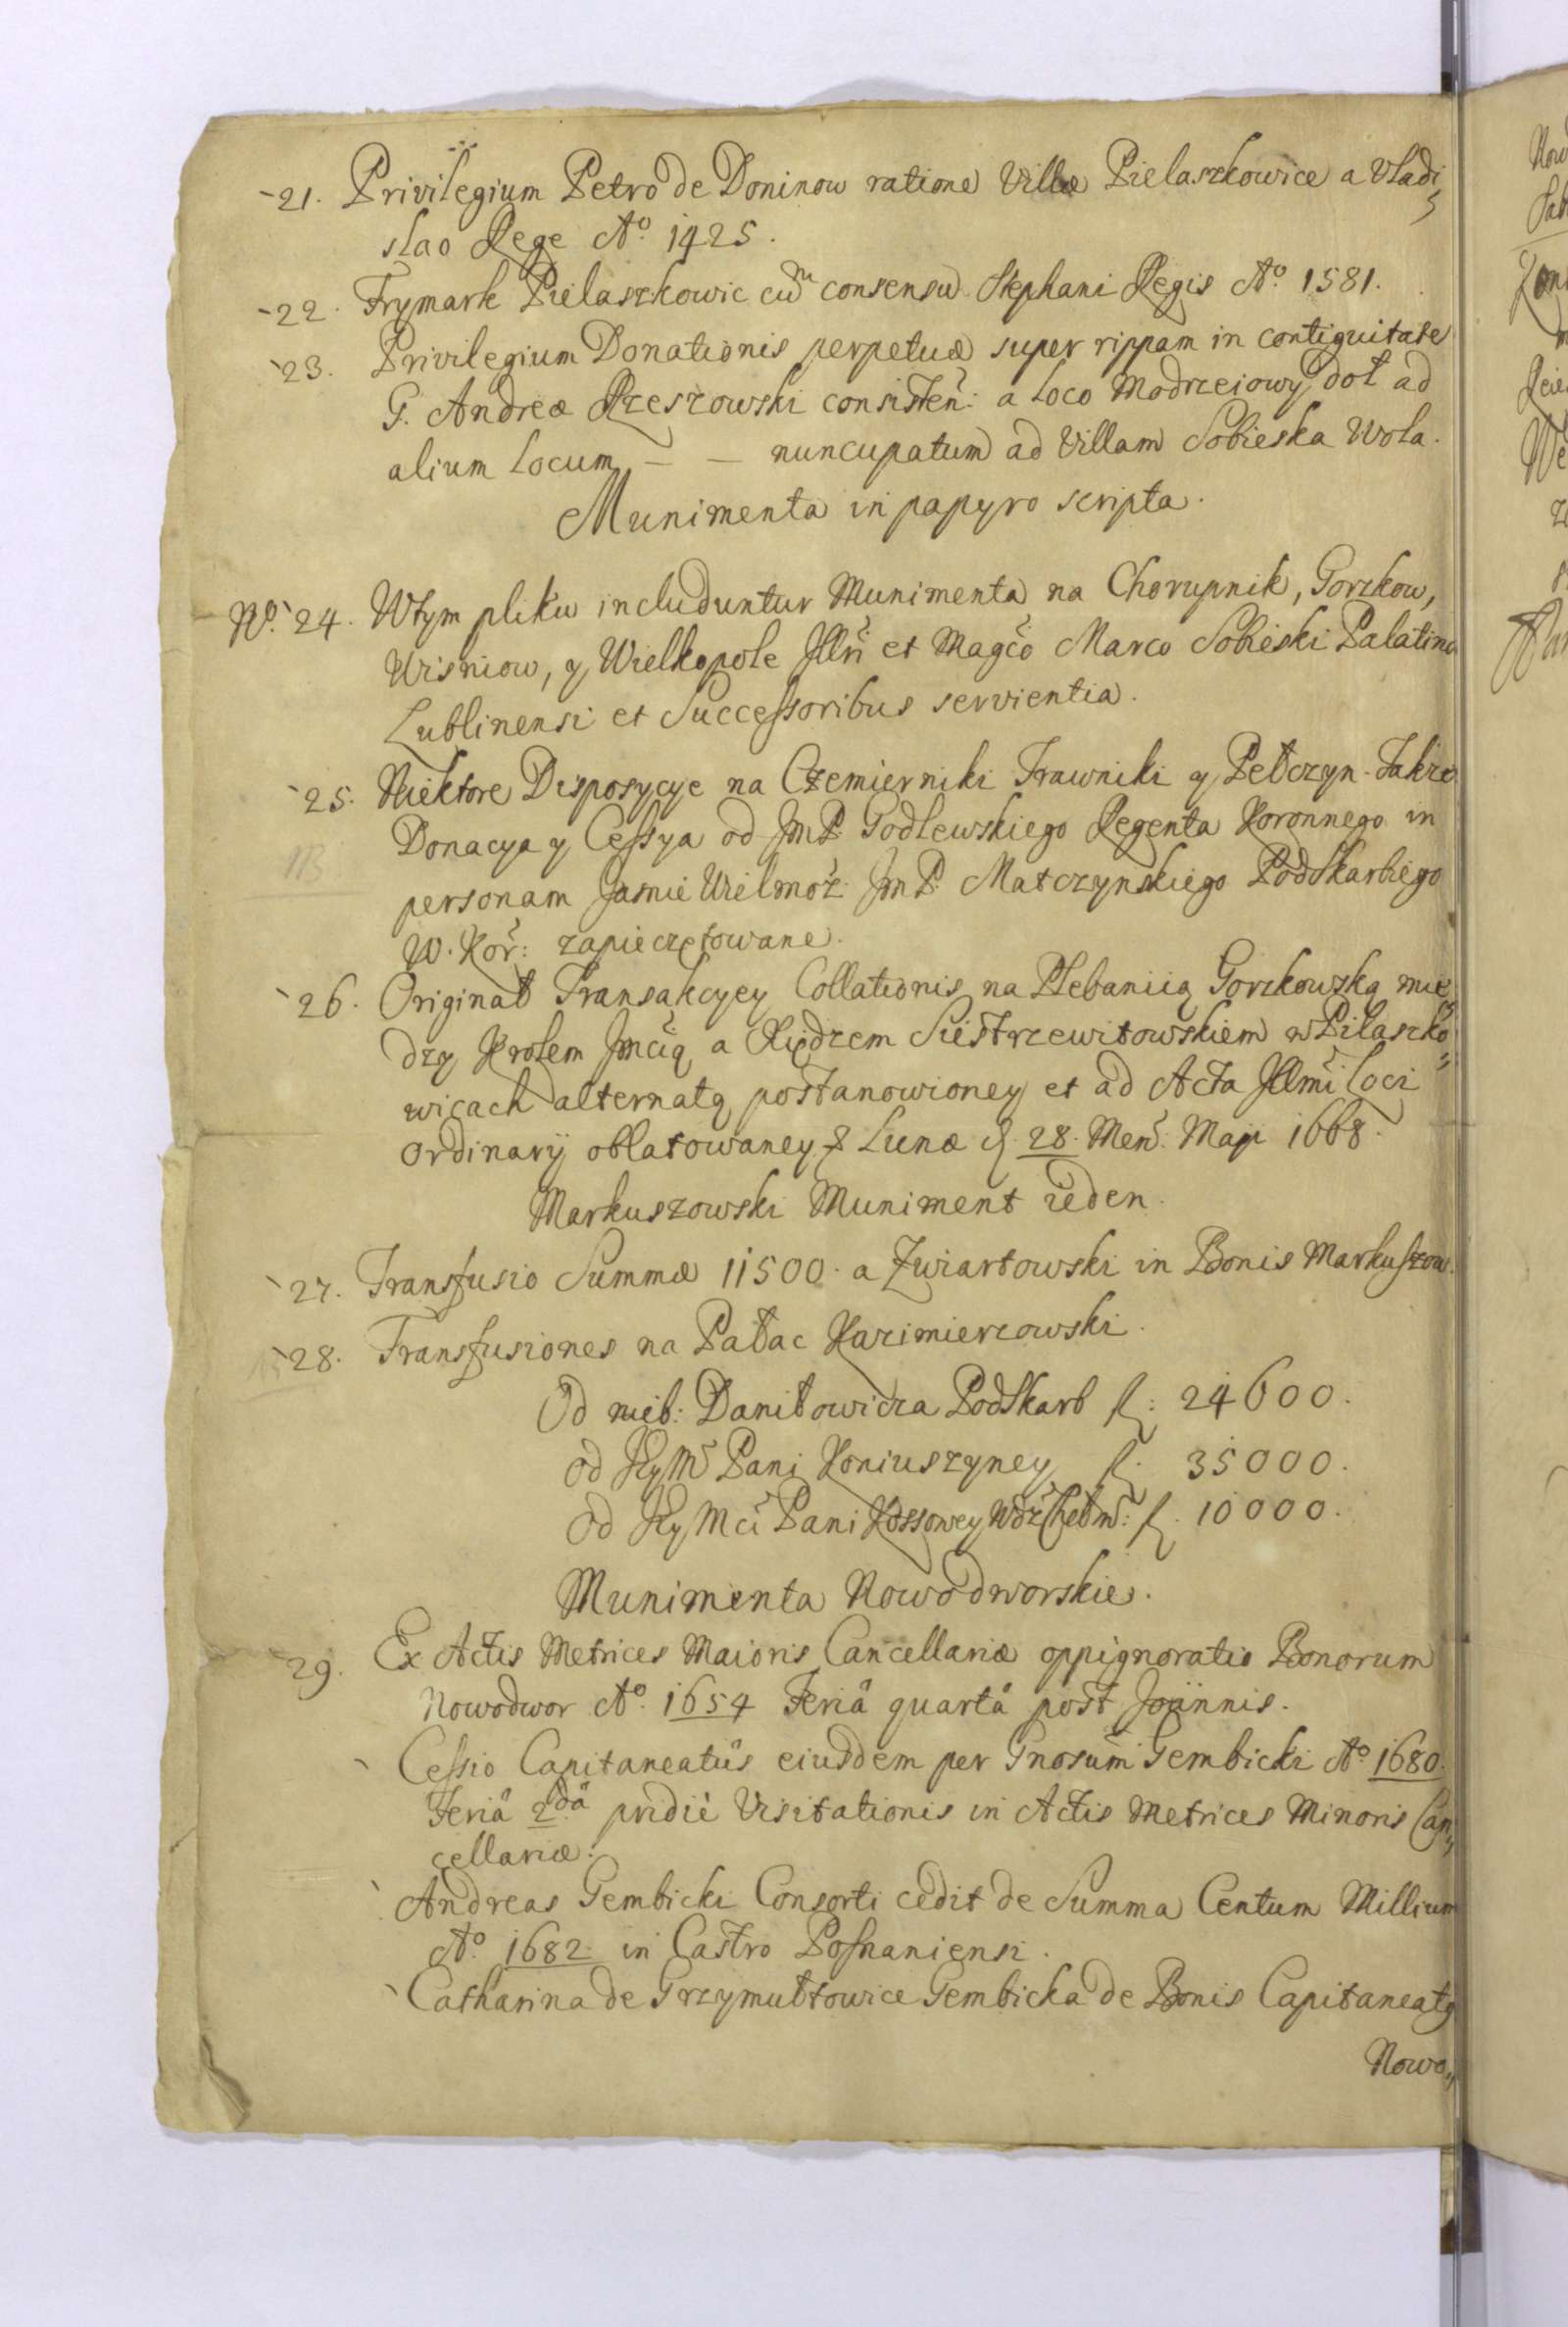 21. Privilegium Petro de Doninow ratione Villæ Pielaszkowice a Vladi„
slao Rege Aº. 1425.
22. Frymark Pielaszkowic cum consensu Stephani Regis Aº. 1581.
23. Privilegium Donationis perpetuæ super rippam in contiguitate
G. Andreæ Rzeszowski consisten: a loco Modrzeiowy doł ad
alium Locum — — nuncupatum ad Villam Sobieska Wola.
Munimenta in papyro scripta.
Nº. 24. Wtym pliku includuntur Munimenta na Chorupnik, Gorzkow,
Wisniow, y Wielkopole Illri et Magco Marco Sobieski Palatino
Lublinensi et Successoribus servientia.
25. Niektore Disposycye na Czemierniki Trawniki y Pełczyn. Takze
Donacya y Cessya od JmP. Godlewskiego Regenta Koronnego in
personam Jasnie Wielmoż: JmP. Matczynskiego Podskarbiego
W. Kor: zapieczętowane.
26. Originał Transakcyey Collationis na Plebaniią Gorzkowską mię
dzy Krolem Jmcią a Xiędzem Siestrzewitowskiem w Pilaszko„
wicach alternatą postanowioney et ad Acta Illmi Loci
Ordinarij oblatowaney Lunæ d. 28. Men. Maji 1668.
Markuszowski Muniment ieden.
27. Transfusio Summæ 11500. a Zwiartowski in Bonis Markuszow.
28. Transfusiones na Pałac Kazimierzowski.
Od nieb: Daniłowicza Podskarb f: 24600.
od JeyM Pani Koniuszyney f. 35000.
Od Jey Mci Pani Kossowey Wdz Chełm: f. 10000.
Munimenta Nowodworskie.
29. Ex Actis Metrices Maioris Cancellariæ oppignoratio Bonorum
Nowodwor Aº. 1654 Feriâ quartâ post Joannis.
Cessio Capitaneatûs eiusdem per Gnosum Gembicki Aº. 1680.
Feriâ 2dâ pridiè Visitationis in Actis Metrices Minoris Can„
cellariæ.
Andreas Gembicki Consorti cedit de Summa Centum Millium
Aº. 1682. in Castro Posnaniensi.
Catharina de Grzymułtowice Gembicka de Bonis Capitaneatq
Nowo„